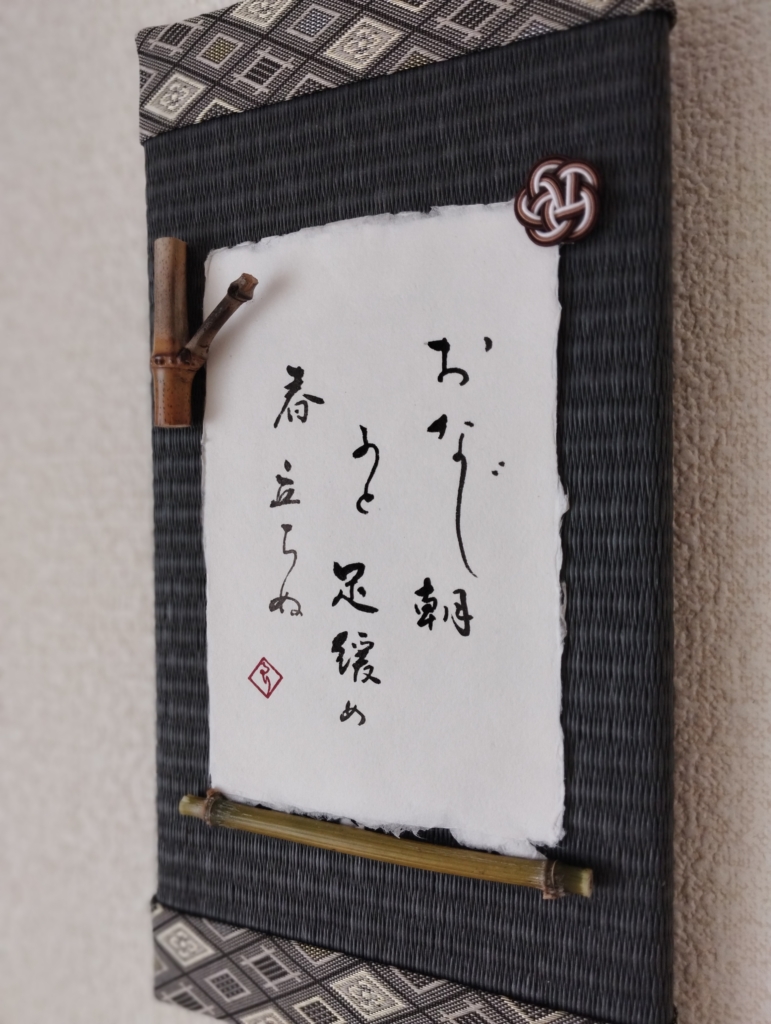 おなじ朝
ふと足緩め
春立ちぬ